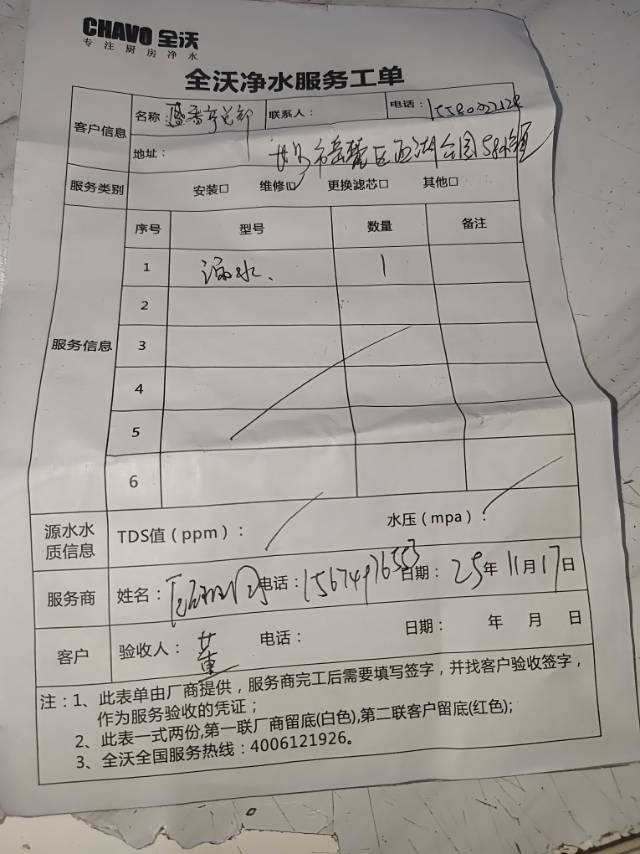 CHAVO 全沃
专注厨房净水
全沃净水服务工单
客户信息 名称 联系人： 电话：
地址： 长沙市岳麓区西湖公园
服务类别 安装□ 维修☑ 更换滤芯□ 其他□
服务信息 序号 型号 数量 备注
1 漏水、 1
2
3
4
5
6
源水水质信息 TDS值（ppm）： 水压（mpa）：
服务商 姓名： 电话：15674976553 日期：25年11月17日
客户 验收人：董 电话： 日期： 年 月 日
注：1、此表单由厂商提供，服务商完工后需要填写签字，并找客户验收签字，
作为服务验收的凭证；
2、此表一式两份,第一联厂商留底(白色),第二联客户留底(红色);
3、全沃全国服务热线：4006121926。